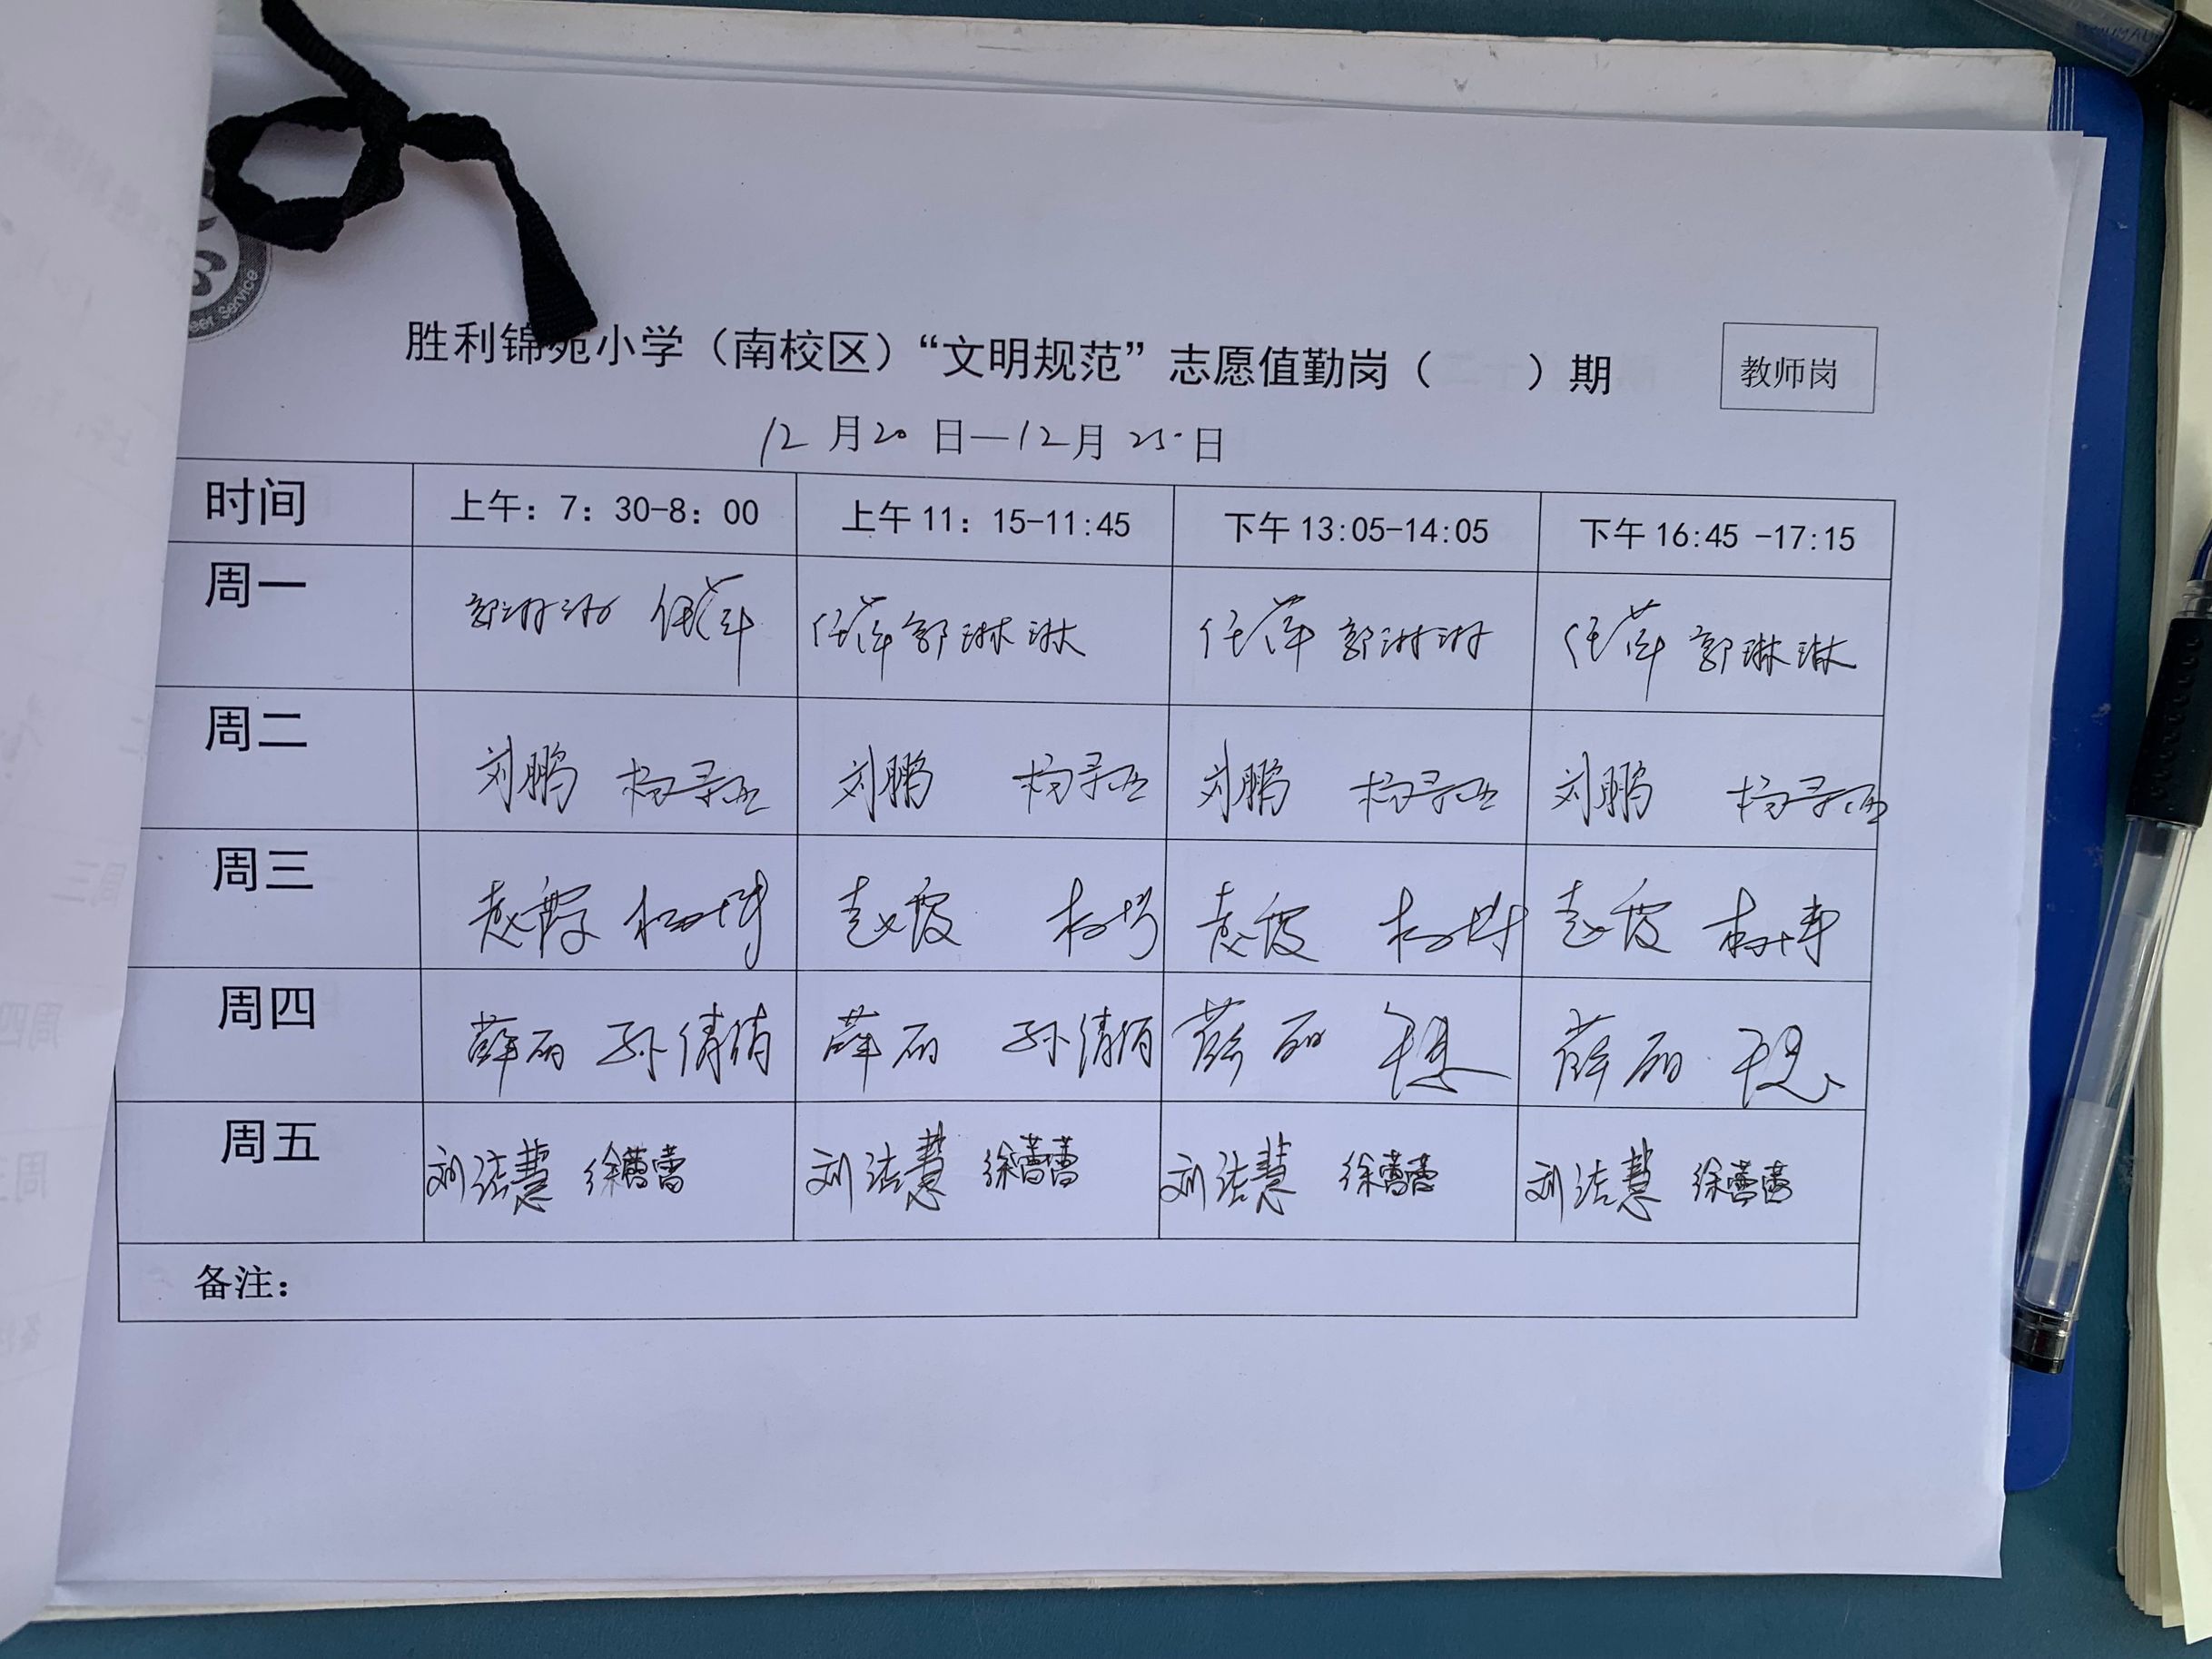 eer Service
胜利锦苑小学（南校区）“文明规范”志愿值勤岗（　　）期
教师岗
12月20日—12月25日
时间 上午：7：30-8：00 上午11：15-11:45 下午13:05-14:05 下午16:45 -17:15
周一 郭琳琳 任萍 任萍 郭琳琳 任萍 郭琳琳 任萍 郭琳琳
周二 刘鹏 刘鹏 刘鹏 刘鹏
周三 赵霞 赵霞 赵霞 赵霞
周四 薛丽 孙倩倩 薛丽 孙倩倩 薛丽 薛丽
周五 刘洁慧 徐蕾蕾 刘洁慧 徐蕾蕾 刘洁慧 徐蕾蕾 刘洁慧 徐蕾蕾
备注：